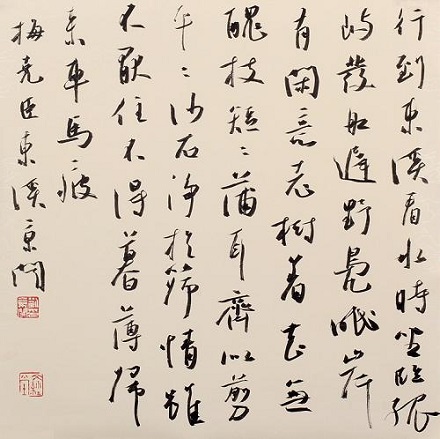 行到東溪看水時坐臨孤
嶼發船遲野鳧眠岸
有閑意老樹著花無
醜枝短〻蒲耳齊似剪
平〻沙石淨於篩情雖
不厭住不得暮薄歸
来車馬疲
梅堯臣東溪